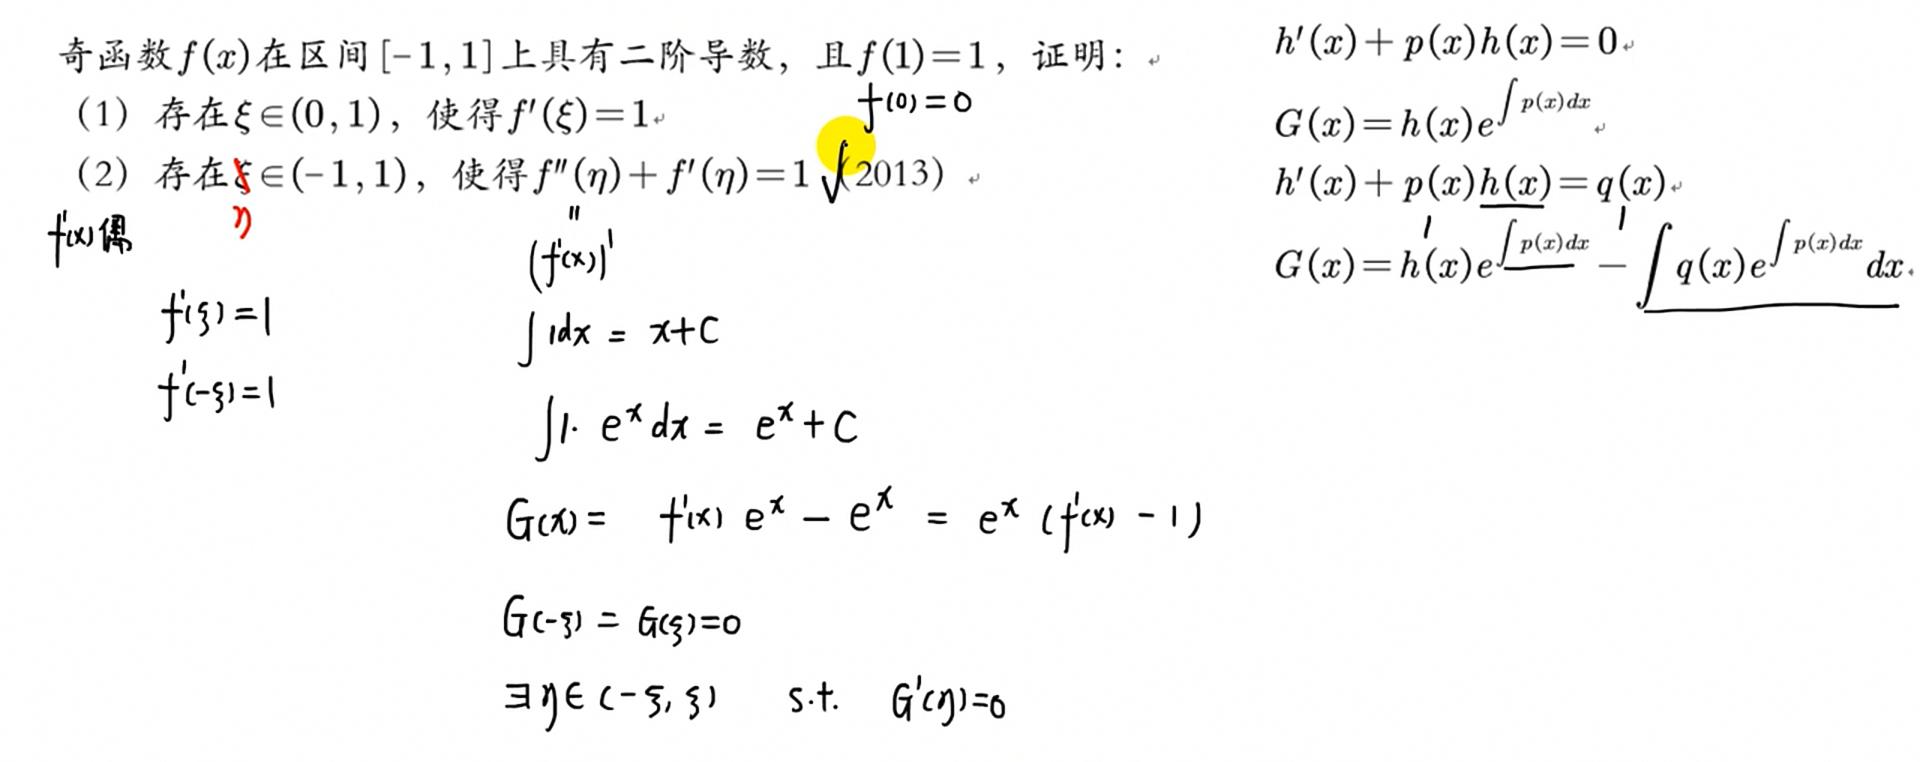 奇函数f(x)在区间[-1,1]上具有二阶导数，且f(1)=1，证明：
f(0)=0
（1）存在ξ∈(0,1)，使得f′(ξ)=1
（2）存在ξ∈(-1,1)，使得f″(η)+f′(η)=1 (2013)
η
f′(x)偶
f′(ξ)=1
f′(-ξ)=1
"
(f′(x))′
∫1dx = x+C
∫1· e^x dx = e^x+C
G(x)= f′(x) e^x - e^x = e^x (f′(x) -1)
G(-ξ) = G(ξ)=0
∃η∈(-ξ,ξ) s.t. G′(η)=0
h′(x)+p(x)h(x)=0
G(x)=h(x)e^{∫p(x)dx}
h′(x)+p(x)h(x)=q(x)
1 1
G(x)=h(x)e^{∫p(x)dx}-∫q(x)e^{∫p(x)dx}dx